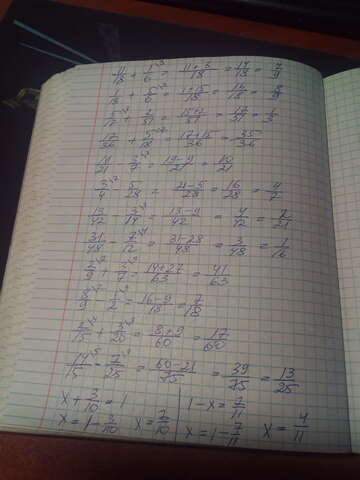 11/18 + 1/6 = 11+3/18 = 14/18 = 7/9
1/18 + 5/6 = 1+15/18 = 16/18 = 8/9
17/36 + 5/18 = = 35/36
19/21 - 3/7 = 19-9/21 = 10/21
3/4 - 5/28 = 21-5/28 = 16/28 = 4/7
13/42 - 3/14 = 13-9/42 = 4/42 = 2/21
31/48 - 7/12 = 31-28/48 = 3/48 = 1/16
2/9 + 3/7 = 14+27/63 = 41/63
8/9 - 1/2 = 16-9/18 = 7/18
2/15 + 3/20 = 8+9/60 = 17/60
14/15 - 7/25 = 60-21/75 = 39/75 = 13/25
x + 3/10 = 1
x = 1 - 3/10 x = 7/10
1 - x = 7/11
x = 1 - 7/11 x = 4/11